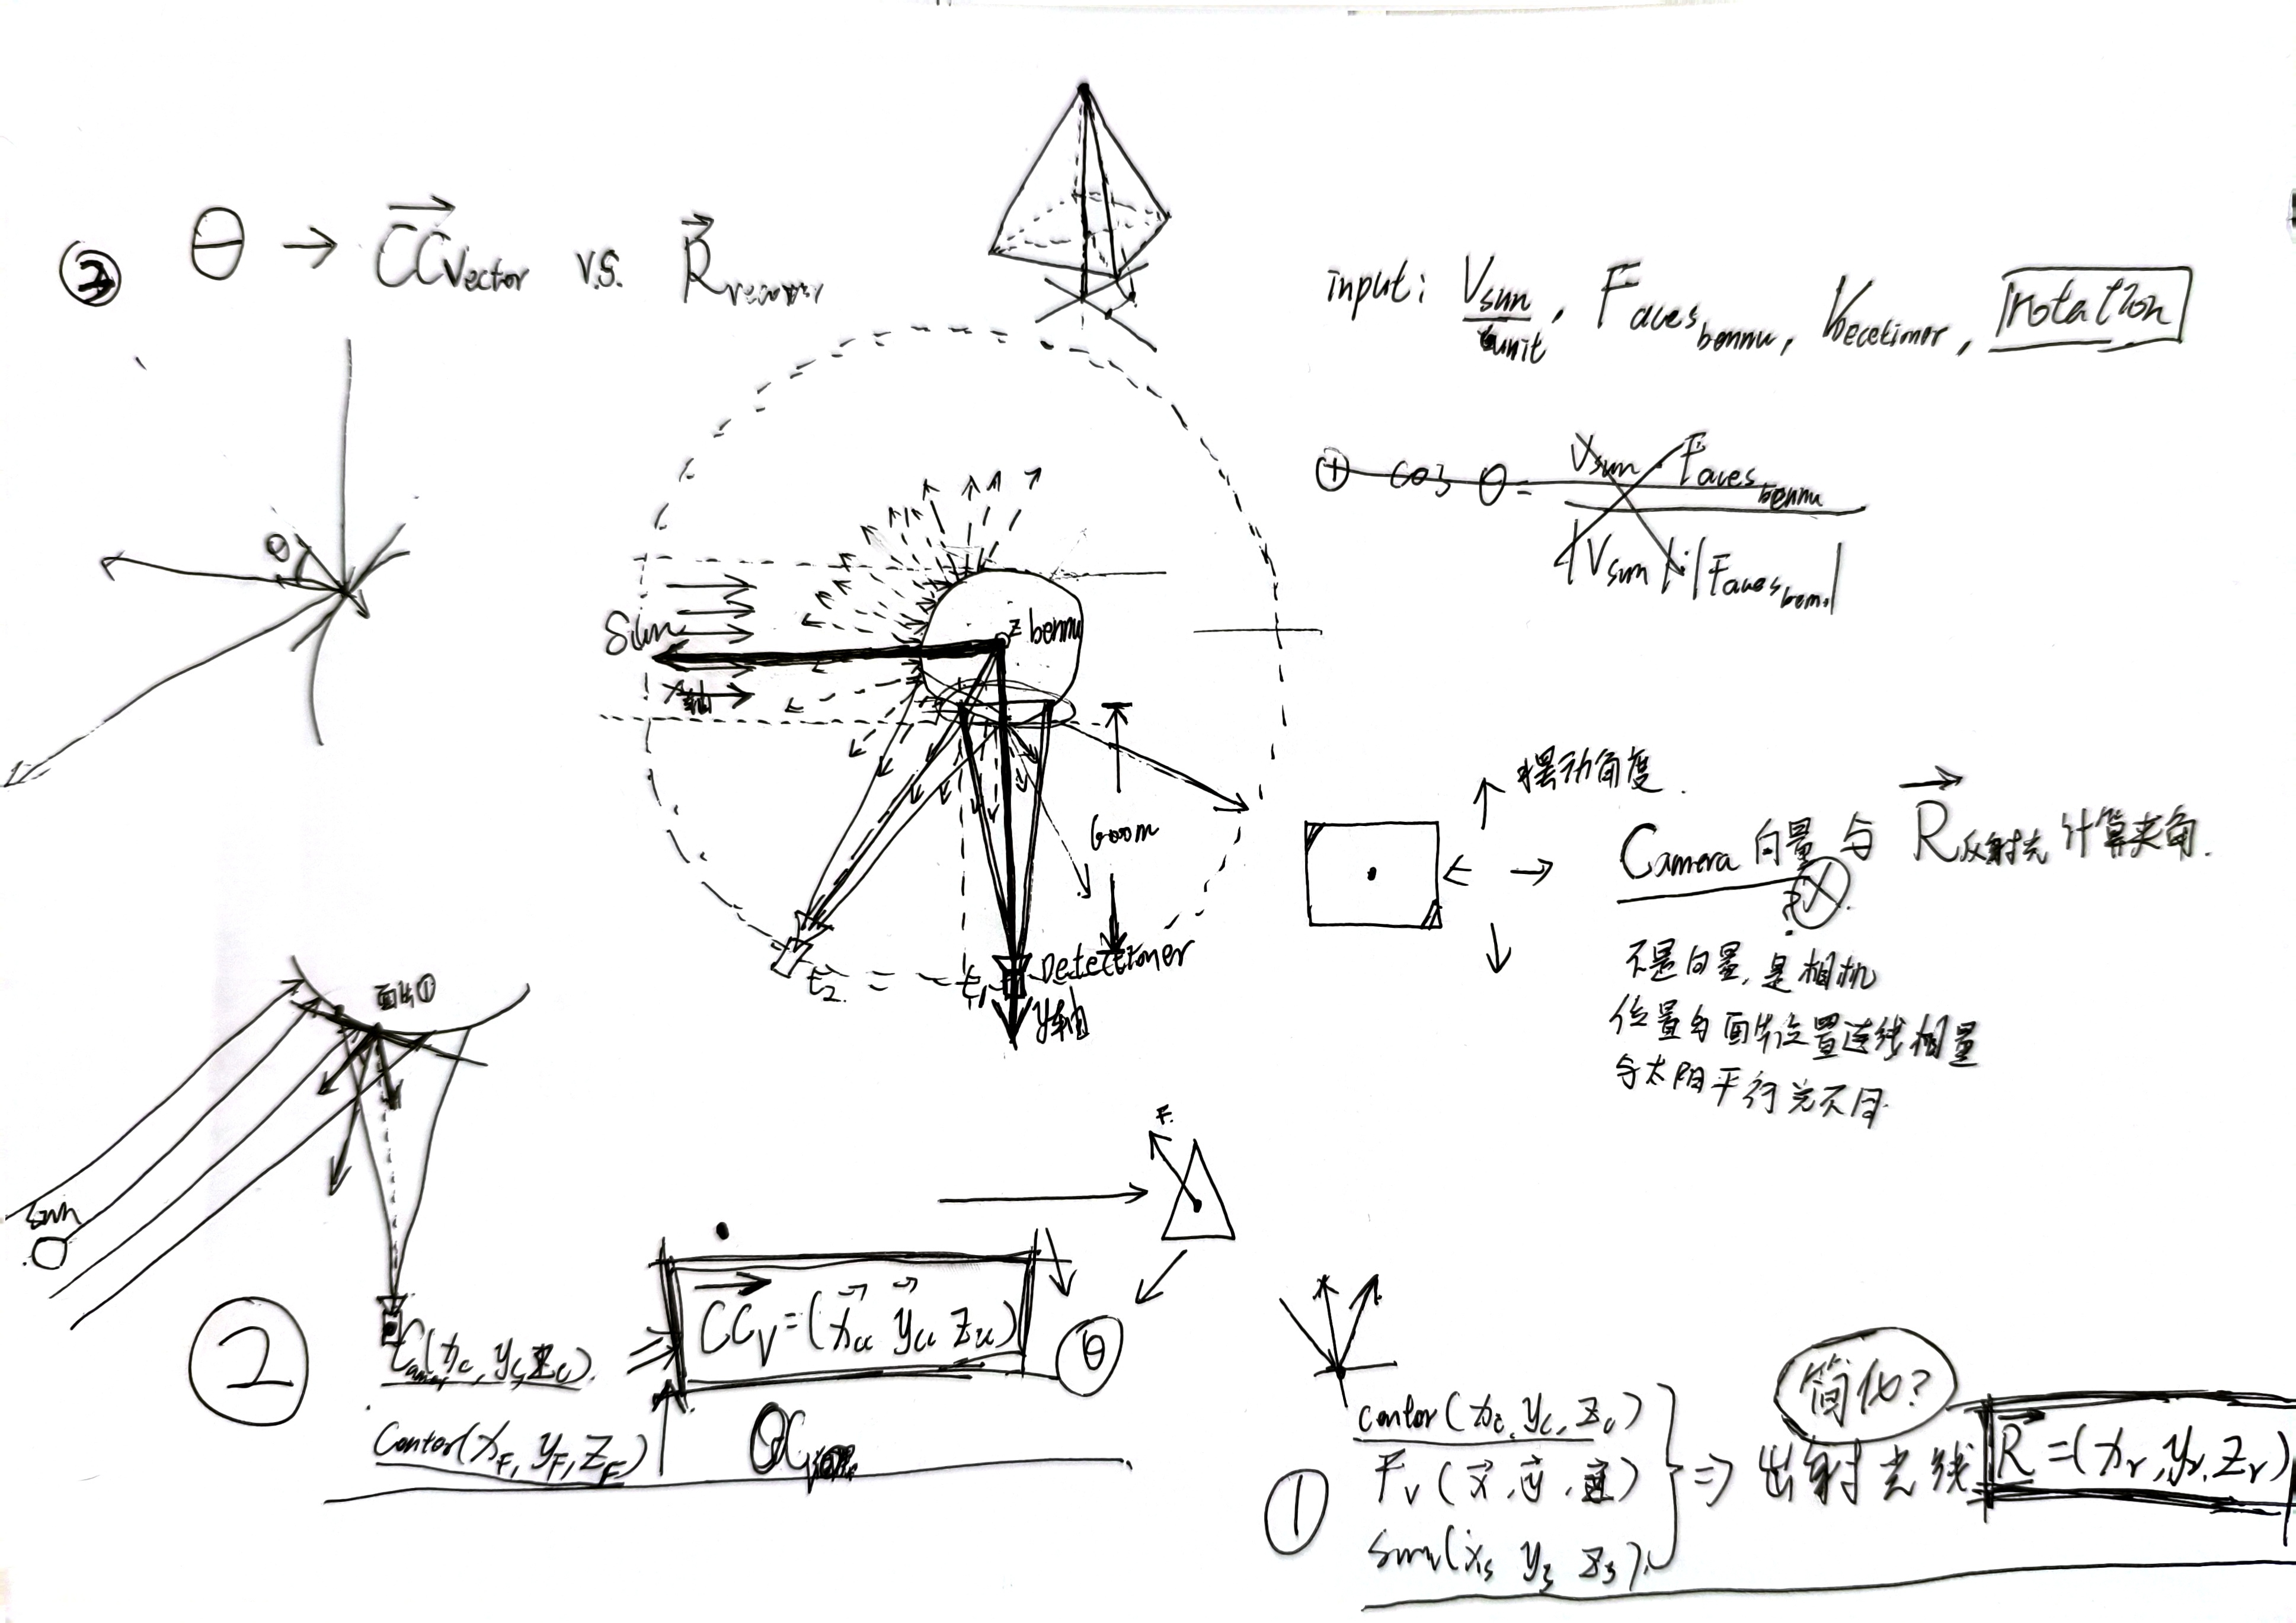 ③ θ → CCVector v.s. R
input: Vsun unit, Faces bennu, Vdecetimor, rotation
① cos θ = Vsun · Faces bennu
|Vsun|·|Faces benn.|
θ
Sun
x轴
z bennu
600m
Detectioner
t2
t1
y轴
摆动角度
Camera 向量 与 R反射光 计算夹角.
不是向量,是相机
位置与面片位置连线相量
与太阳平行光不同
面片①
sun
F
②
Cam(xc, yc, zc).
Center(xF, yF, zF)
CCv=(xcc ycc zcc)
θ
①
center(xc, yc, zc)
Fv(x, y, z)
Sun(xs ys zs)
⇒ 出射光线 R=(xr, yr, zr)
简化?